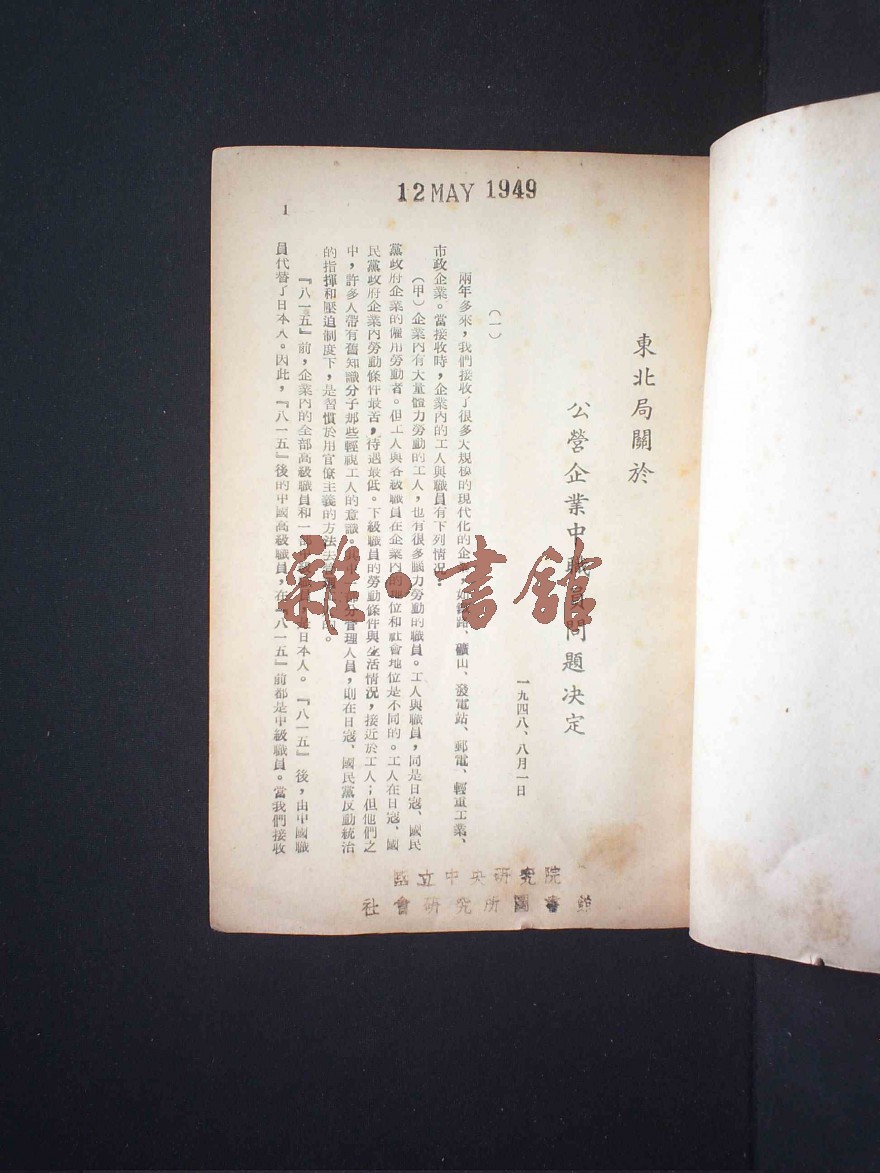 12 MAY 1949
東北局關於
公營企業中職員問題決定
一九四八、八月一日
（一）
兩年多來，我們接收了很多大規模的現代化的企 路、礦山、發電站、郵電、輕重工業、
市政企業。當接收時，企業內的工人與職員有下列情況：
（甲）企業內有大量體力勞動的工人，也有很多腦力勞動的職員。工人與職員，同是日寇、國民
黨政府企業的僱用勞動者。但工人與各級職員在企業內的地位和社會地位是不同的。工人在日寇、國
民黨政府企業內勞動條件最苦，待遇最低。下級職員的勞動條件與生活情況，接近於工人；但他們之
中，許多人帶有舊知識分子那些輕視工人的意識。 管理人員，則在日寇、國民黨反動統治
的指揮和壓迫制度下，是習慣於用官僚主義的方法去 的。
『八一五』前，企業內的全部高級職員和一部 日本人。『八一五』後，由中國職
員代替了日本人。因此，『八一五』後的中國高級職員，在『八一五』前都是中級職員。當我們接收
1
國立中央研究院
社會研究所圖書館
雜·書館